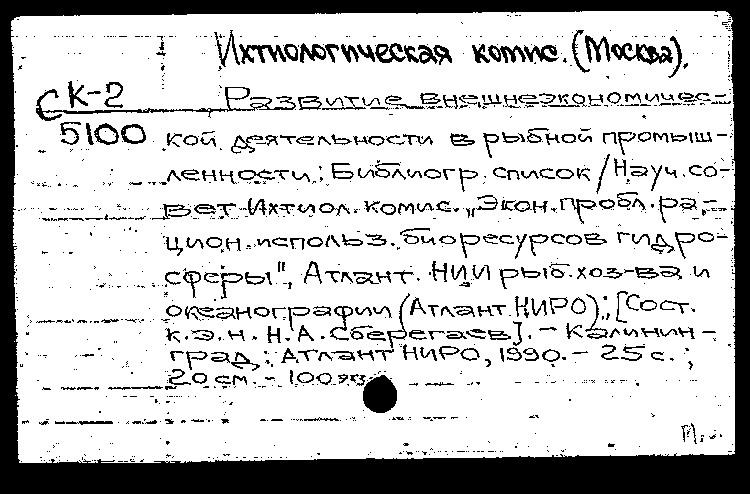 Ихтиологическая комис. (Москва).
С К-2
5100
Развитие внешнеэкономичес-
кой деятельности в рыбной промыш-
ленности: Библиогр. список / Науч. со-
вет Ихтиол. комис. „Экон. пробл. ра-
цион. использ. биоресурсов гидро-
сферы", Атлант. НИИ рыб. хоз-ва и
океанографии (АтлантНИРО); [Сост.
к.э.н. Н.А. Сберегаев]. - Калинин-
град: АтлантНИРО, 1990. - 25 с.;
20 см. - 100 экз.